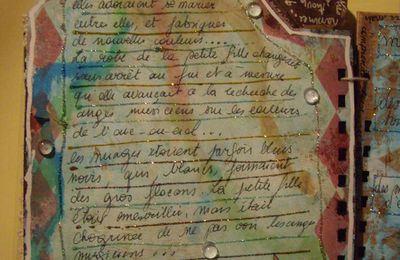 elles adoraient se marier
entre elles, et fabriquer
de nouvelles couleurs....
la robe de la petite fille changeait
sans arrêt au fur et a mesure
qu'elle avançait à la recherche des
anges musiciens sur les couleurs
de l'arc-au-ciel...
les nuages étaient parfois bleus
noirs, gris, blancs, formaient
des gros flocons. la petite fille
était émerveillée, mais était
chagrinée de ne pas voir les anges
musiciens ...